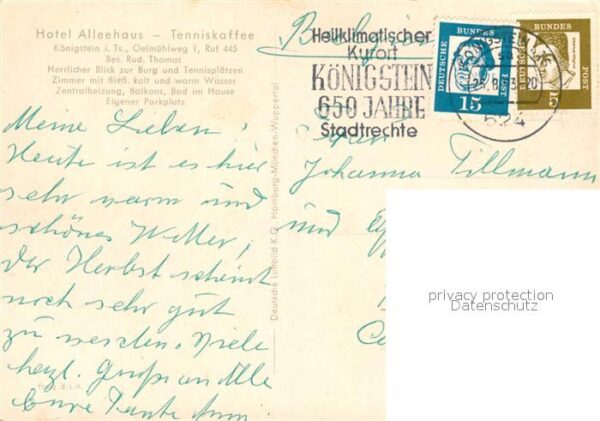 Hotel Alleehaus – Tenniskaffee
Königstein i. Ts., Oelmühlweg 1, Ruf 445
Bes. Rud. Thomas
Herrlicher Blick zur Burg und Tennisplätzen
Zimmer mit fließ. kalt und warm Wasser
Zentralheizung, Balkons, Bad im Hause
Eigener Parkplatz
Meine Lieben!
Heute ist es hier
sehr warm und
schönes Wetter,
der Herbst scheint
noch sehr gut
zu werden. Viele
herzl. Grüße an Alle
Eure Tante
Foto d. L.A.
Deutsche Luftbild K.G. Hamburg-München-Wuppertal
Heilklimatischer
Kurort
KÖNIGSTEIN
650 JAHRE
Stadtrechte
DEUTSCHE BUNDES POST
15
DEUTSCHE BUNDES POST
5
624
Johanna Tillmann
und
privacy protection
Datenschutz